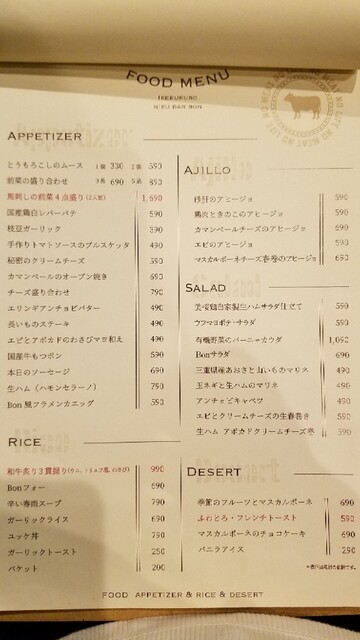 FOOD MENU
IKEBUKURO
NIKU BAR BON
APPETIZER
とうもろこしのムース 1個 330 2個 590
前菜の盛り合わせ 3種 690 5種 890
馬刺しの前菜4点盛り(2人前) 1,690
国産鶏白レバーパテ 590
枝豆ガーリック 390
手作りトマトソースのブルスケッタ 490
秘密のクリームチーズ 590
カマンベールのオーブン焼き 690
チーズ盛り合わせ 790
エリンギアンチョビバター 490
長いものステーキ 490
エビとアボカドのわさびマヨ和え 490
国産牛もつポン 590
本日のソーセージ 690
生ハム(ハモンセラーノ) 790
Bon 風フラメンカエッグ 590
RICE
和牛炙り3貫握り(ウニ、トリュフ塩、わさび) 990
Bonフォー 690
辛い春雨スープ 790
ガーリックライス 690
ユッケ丼 790
ガーリックトースト 250
バケット 200
AJILLO
砂肝のアヒージョ 590
鶏肉ときのこのアヒージョ 590
カマンベールチーズのアヒージョ 690
エビのアヒージョ 590
マスカルポーネチーズ春巻のアヒージョ 690
SALAD
自家製生ハムサラダ仕立て 590
サラダ 590
有機野菜のバーニャカウダ 1,090
Bonサラダ 690
三重県産あおさと山いものマリネ 490
玉ネギと生ハムのマリネ 490
アンチョビキャベツ 490
エビとクリームチーズの生春巻き 590
生ハム アボカドクリームチーズ巻 590
DESERT
季節のフルーツとマスカルポーネ 690
ふわとろ・フレンチトースト 590
マスカルポーネのチョコケーキ 690
バニラアイス 290
FOOD APPETIZER & RICE & DESERT